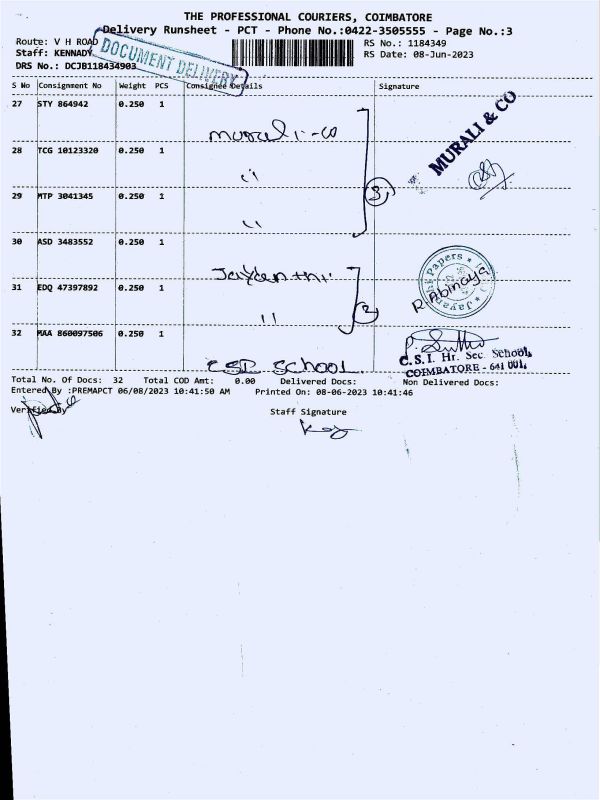 THE PROFESSIONAL COURIERS, COIMBATORE
Delivery Runsheet - PCT - Phone No.:0422-3505555 - Page No.:3
Route: V H ROAD
RS No.: 1184349
Staff: KENNADY
RS Date: 08-Jun-2023
DRS No.: DCJB118434903
DOCUMENT DELIVERY
S No Consignment No Weight PCS Consignee Details Signature
27 STY 864942 0.250 1
Murali-co
MURALI & CO
28 TCG 10123320 0.250 1
"
3
29 MTP 3041345 0.250 1
"
30 ASD 3483552 0.250 1
Jayanthi
31 EDQ 47397892 0.250 1
"
2
R. Abinaya
32 MAA 860097506 0.250 1
CSI School
C.S.I. Hr. Sec. School,
COIMBATORE - 641 001.
Total No. Of Docs: 32 Total COD Amt: 0.00 Delivered Docs: Non Delivered Docs:
Entered By :PREMAPCT 06/08/2023 10:41:50 AM Printed On: 08-06-2023 10:41:46
Verified By
Staff Signature